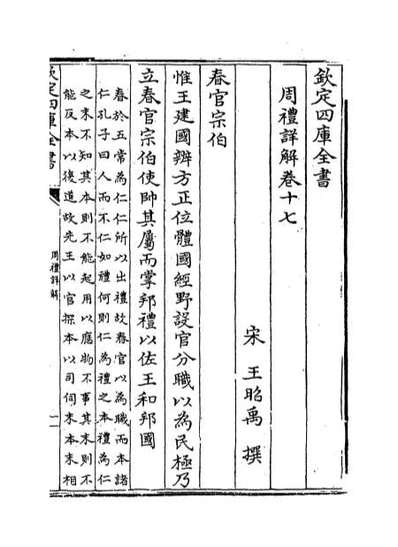 欽定四庫全書
周禮詳解卷十七
宋 王昭禹 撰
春官宗伯
惟王建國辨方正位體國經野設官分職以為民極乃
立春官宗伯使帥其屬而掌邦禮以佐王和邦國
春於五常為仁仁所以出禮故春官以為職而本諸
仁孔子曰人而不仁如禮何則仁為禮之本禮為仁
之末不知其本則不能起用以應物不事其末則不
能反本以復道故先王以官探本以司伺末本末相
欽定四庫全書
周禮詳解
一